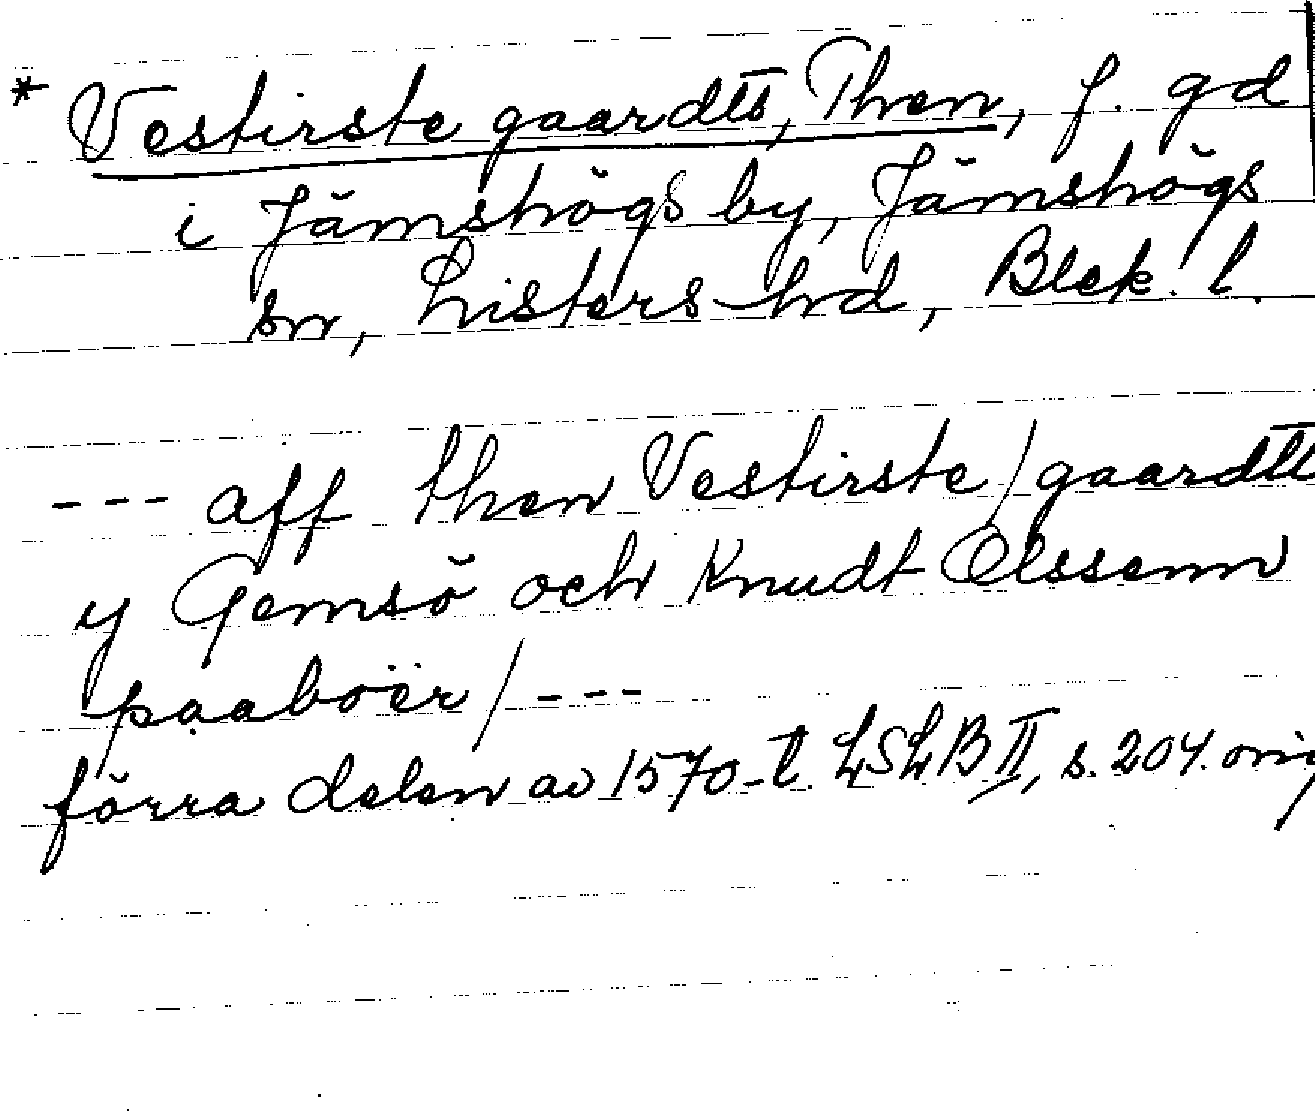 * Vestirste gaardtt, Then, f. gd
i Jämshögs by, Jämshögs
sn, Listers hd, Blek. l.
--- aff then Vestirste / gaardtt
y Gemsö och Knudt Olssenn
paaboër / ---
förra delen av 1570-t. LSLB II, s. 204. orig